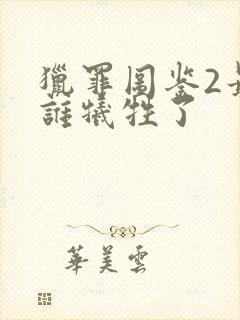 獵罪圖鉴2
誰犧牲了
華美雲